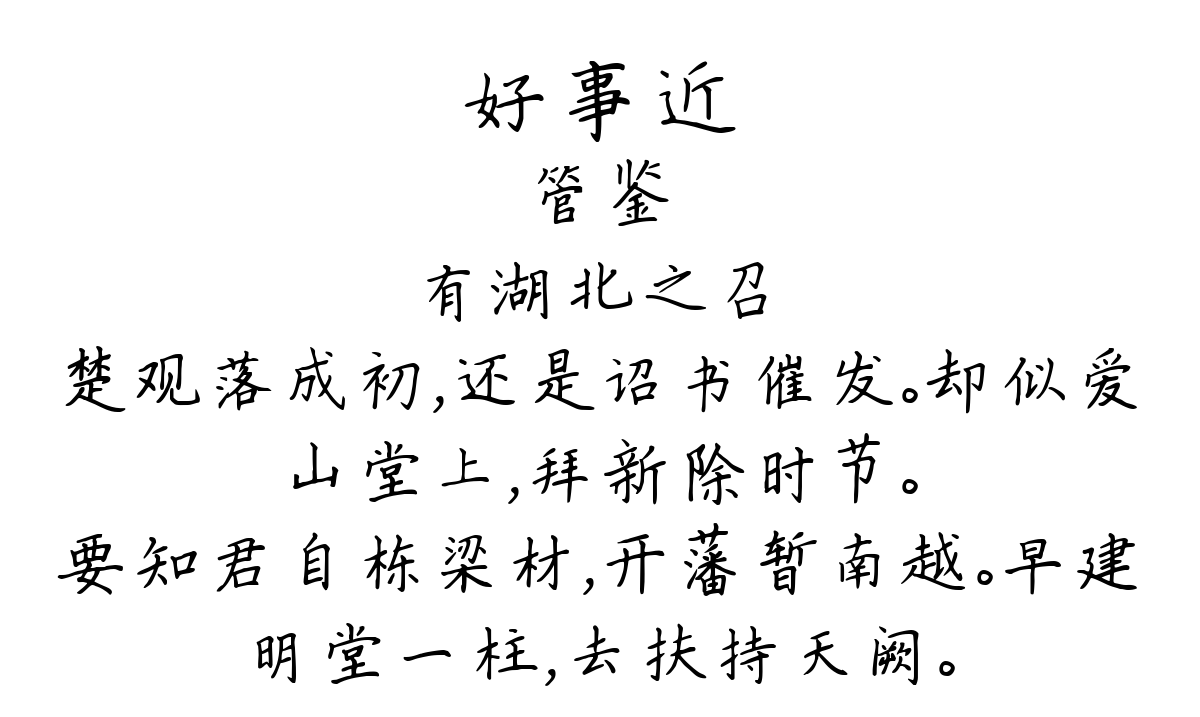 好事近
管鉴
有湖北之召
楚观落成初,还是诏书催发。却似爱
山堂上,拜新除时节。
要知君自栋梁材,开藩暂南越。早建
明堂一柱,去扶持天阙。